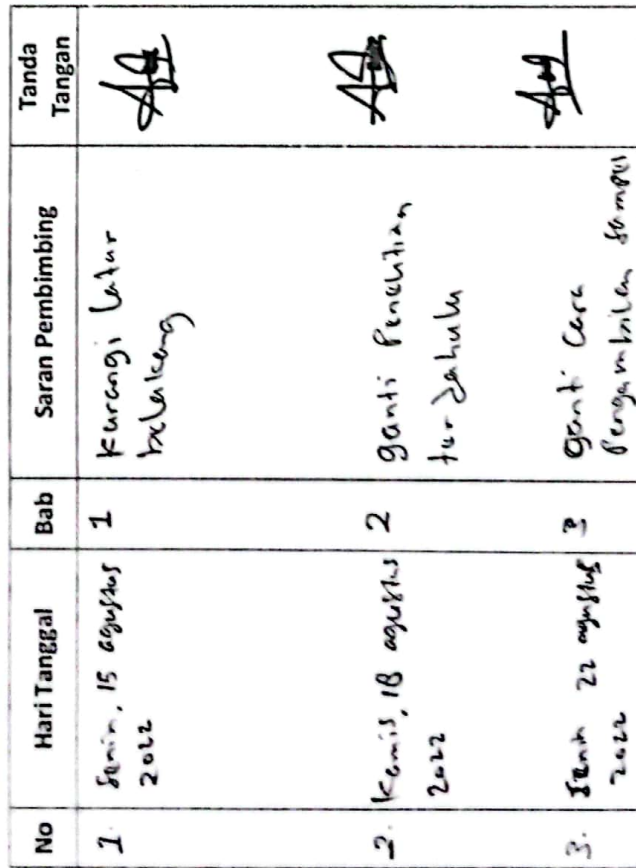 No Hari Tanggal Bab Saran Pembimbing Tanda
Tangan
1. Senin, 15 agustus 1 Kurangi latar
2022 belakang
2. Kamis, 18 agustus 2 ganti Penelitian
2022 terdahulu
3. Senin 22 agustus 3 ganti Cara
2022 Pengambilan sampel